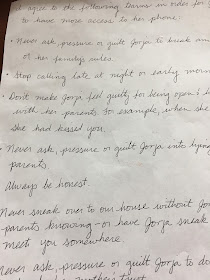 agree to the following terms in order for
to have more access to her phone:
· Never ask, pressure or guilt Jorja to break any
or her family rules.
· Stop calling late at night or early morn
· Don't make Jorja feel guilty for being open &
with her parents. For example, when she
she had kissed you.
· Never ask, pressure or guilt Jorja into lying
parents.
Always be honest.
Never sneak over to our house without Jor
parents knowing - or have Jorja sneak
meet you somewhere.
Never ask, pressure or guilt Jorja to do
trust